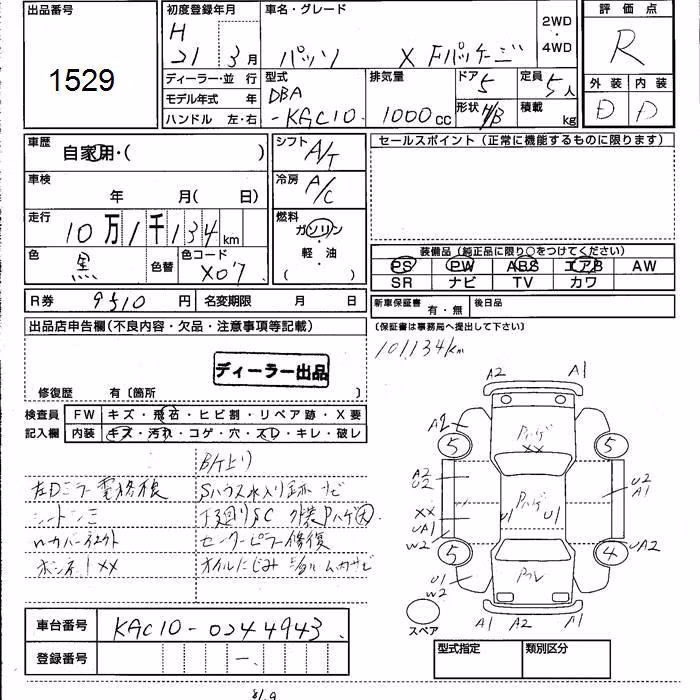 出品番号
1529
初度登録年月
H
21 3月
車名・グレード
パッソ X Fパッケージ
2WD
・
4WD
評価点
R
外装 内装
D D
ディーラー・並 行
モデル年式 年
ハンドル 左・右
型式
DBA
-KGC10
排気量
1000cc
ドア
5
形状
H/B
定員
5人
積載
kg
車歴
自家用・( )
車検
年 月( 日)
走行
10万1千134km
色
黒
色替
色コード
X07
シフト
A/T
冷房
A/C
燃料
ガソリン
・
軽油
( )
セールスポイント (正常に機能するものに限ります)
装備品 (純正品に限り○をつけてください)
PS PW ABS エアB AW
SR ナビ TV カワ
R券 9510円 名変期限 月 日
新車保証書 有・無 後日品
(保証書は事務局へ提出して下さい)
101134km
出品店申告欄(不良内容・欠品・注意事項等記載)
ディーラー出品
修復歴 有〔箇所 〕
検査員 FW キズ・飛石・ヒビ割・リペア跡・X要
記入欄 内装 キズ・汚れ・コゲ・穴・スレ・キレ・破レ
左Dミラー電格損
シートシミ
Sハウス水入り跡サビ
下廻りSC 外装Pハゲ大
センターピラー修復
A2 A1
A2
Pハゲ
XX
5 5
A2
U2
XX
UA1
W2
Pハゲ
U1 U1
U2
A1
5 4 UA2
U1
W2
A1 A2 A1
スペア
車台番号 KGC10-0244943
登録番号 -
型式指定 類別区分